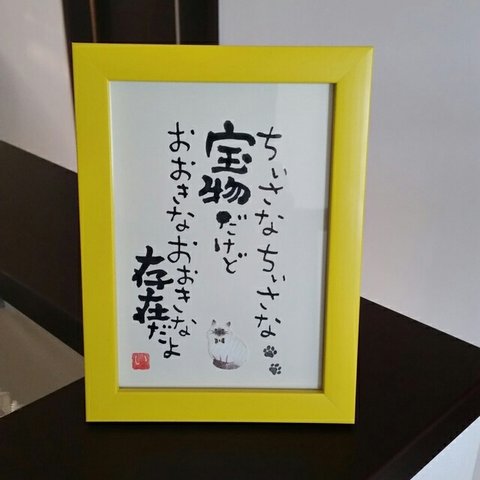 ちいさなちいさな
宝物だけど
おおきなおおきな
存在だよ